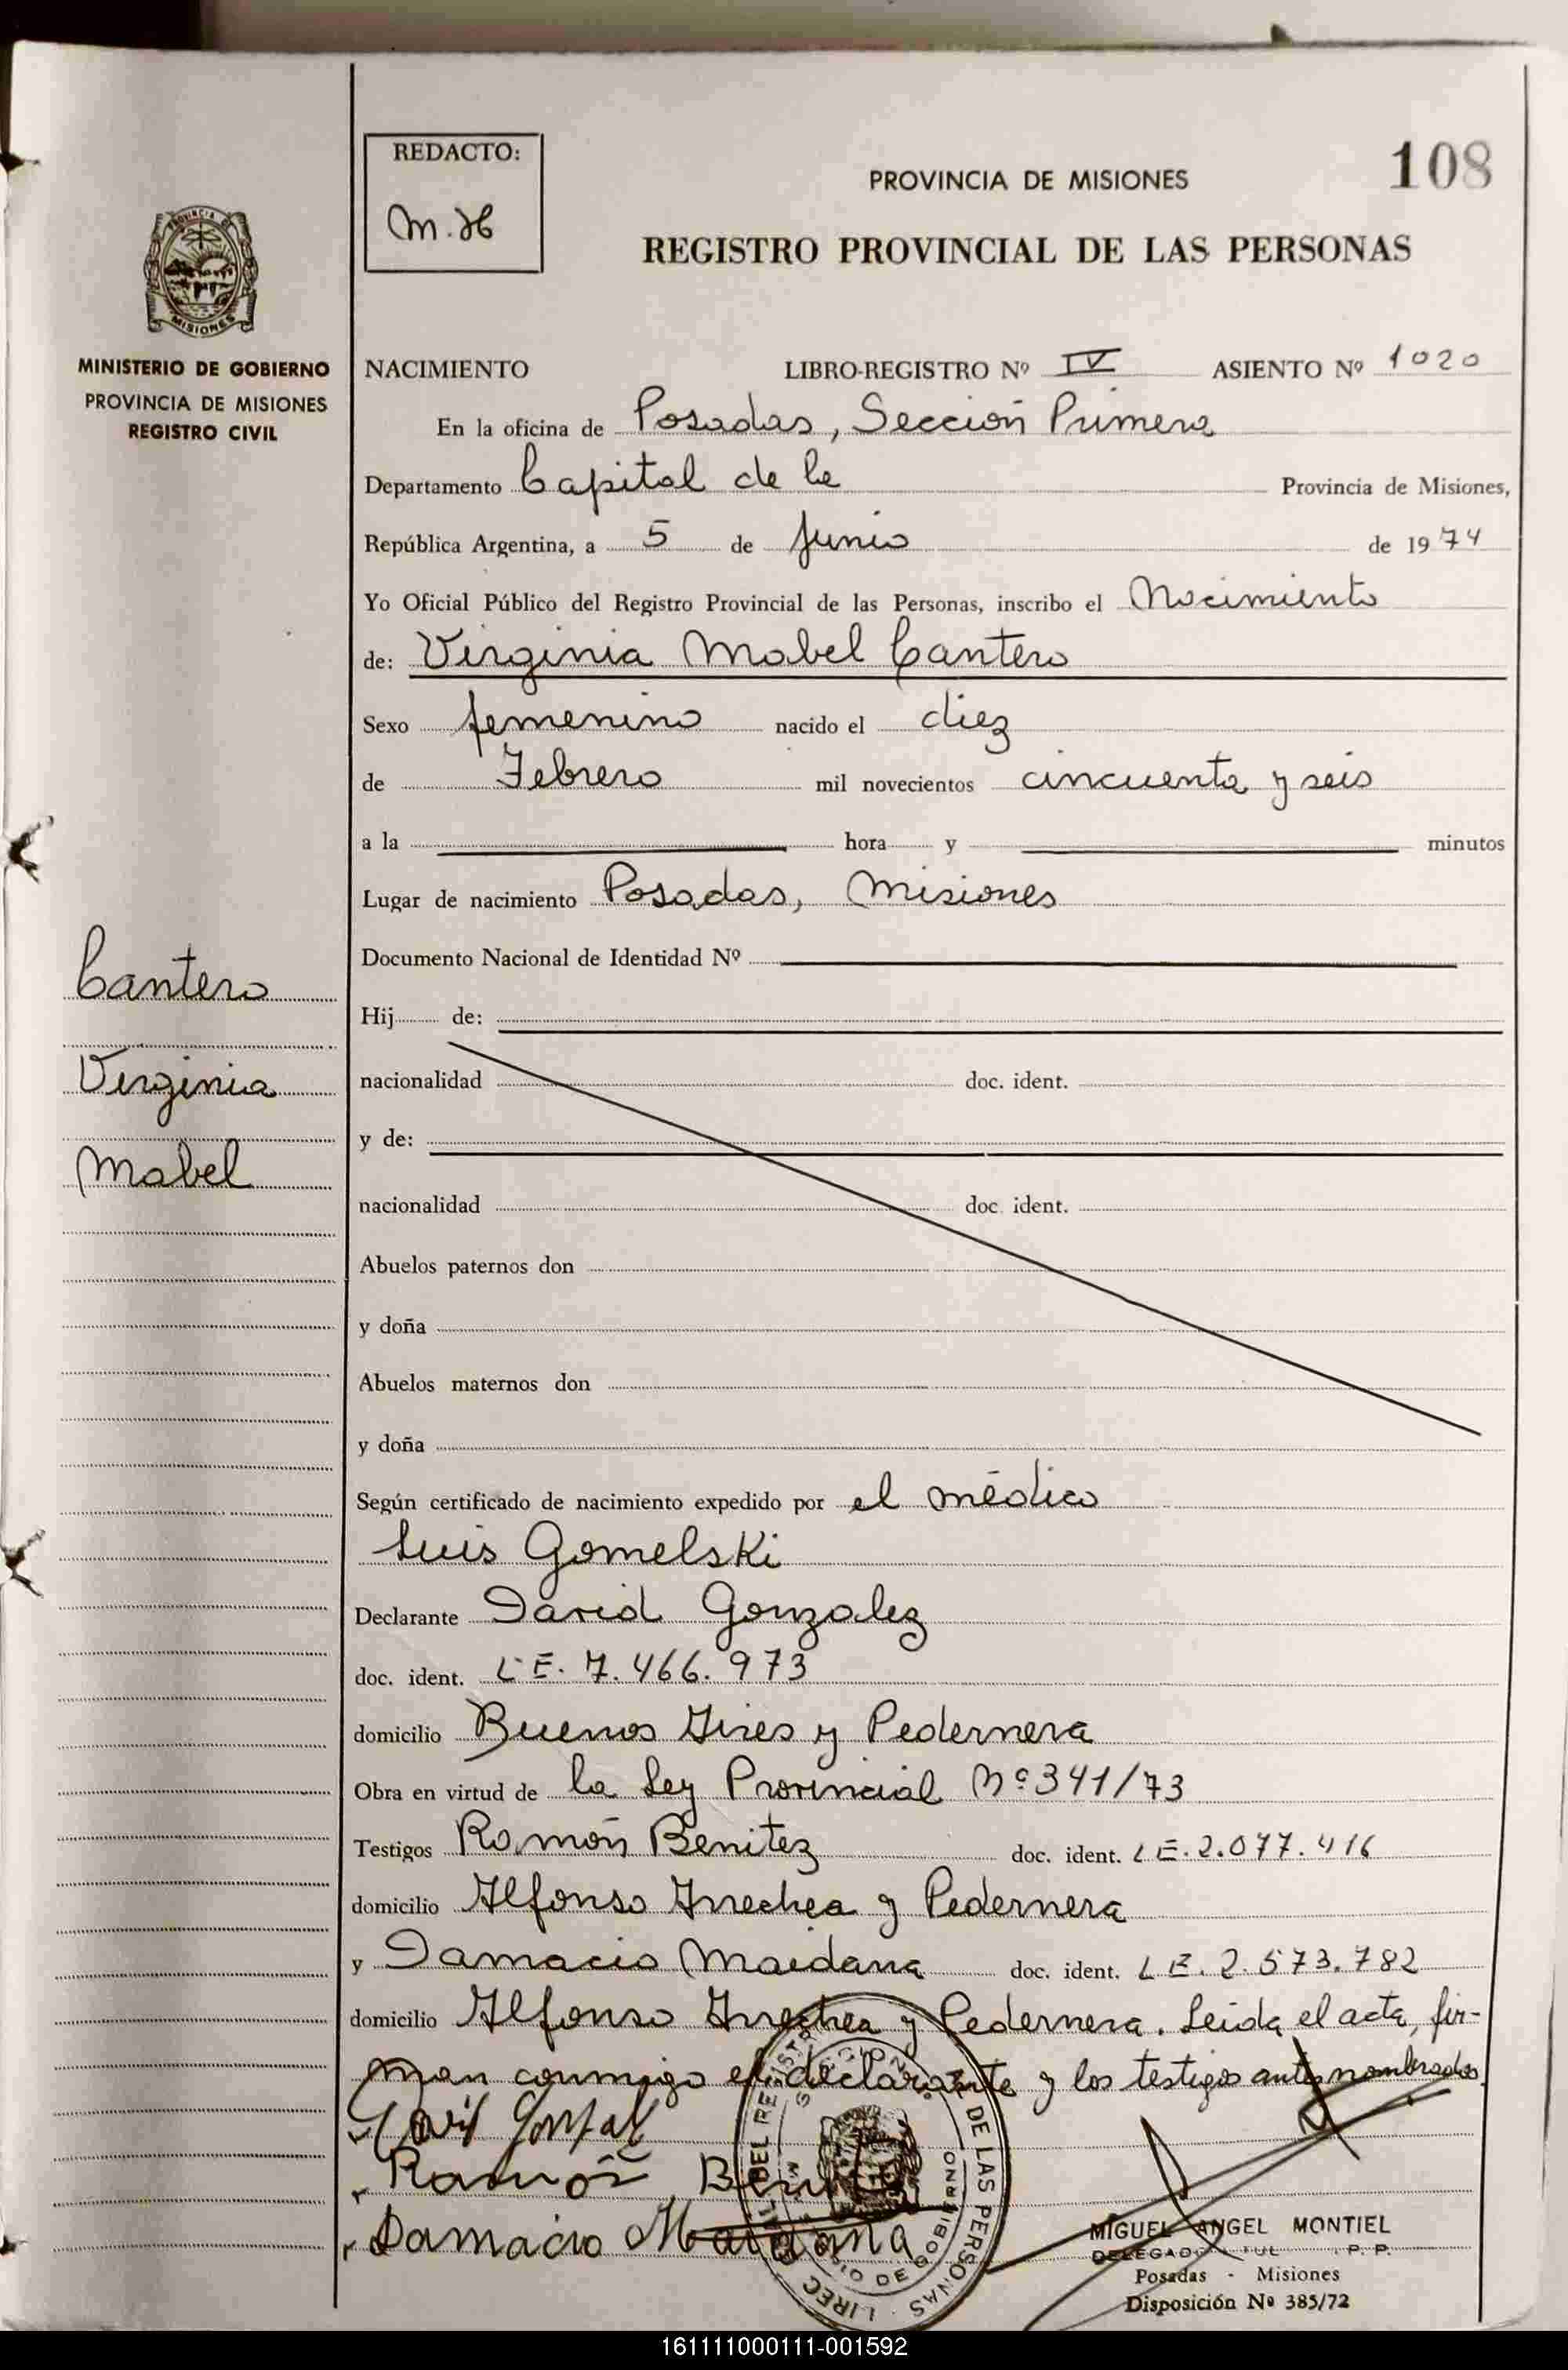 108
REDACTO:
M.H
PROVINCIA DE MISIONES
REGISTRO PROVINCIAL DE LAS PERSONAS
PROVINCIA DE
MISIONES
MINISTERIO DE GOBIERNO
PROVINCIA DE MISIONES
REGISTRO CIVIL
Cantero
Virginia
Mabel
NACIMIENTO LIBRO-REGISTRO Nº IV ASIENTO Nº 1020
En la oficina de Posadas, Sección Primera
Departamento Capital de la Provincia de Misiones,
República Argentina, a 5 de Junio de 1974
Yo Oficial Público del Registro Provincial de las Personas, inscribo el Nacimiento
de: Virginia Mabel Cantero
Sexo femenino nacido el diez
de Febrero mil novecientos cincuenta y seis
a la hora y minutos
Lugar de nacimiento Posadas, Misiones
Documento Nacional de Identidad Nº
Hij de:
nacionalidad doc. ident.
y de:
nacionalidad doc. ident.
Abuelos paternos don
y doña
Abuelos maternos don
y doña
Según certificado de nacimiento expedido por el médico
Luis Gomelski
Declarante David Gonzalez
doc. ident. L.E. 7.466.973
domicilio Buenos Aires y Pedernera
Obra en virtud de la Ley Provincial Nº 341/73
Testigos Ramón Benitez doc. ident. L.E. 2.077.416
domicilio Alfonso Arrechea y Pedernera
y Damacio Maidana doc. ident. L.E. 2.573.782
domicilio Alfonso Arrechea y Pedernera. Leída el acta, fir-
man conmigo el declarante y los testigos antes nombrados.
Ramón
Damacio Maidana
DE LAS PERSONAS
DE GOBIERNO
MIGUEL ANGEL MONTIEL
Posadas - Misiones
Disposición Nº 385/72
161111000111-001592